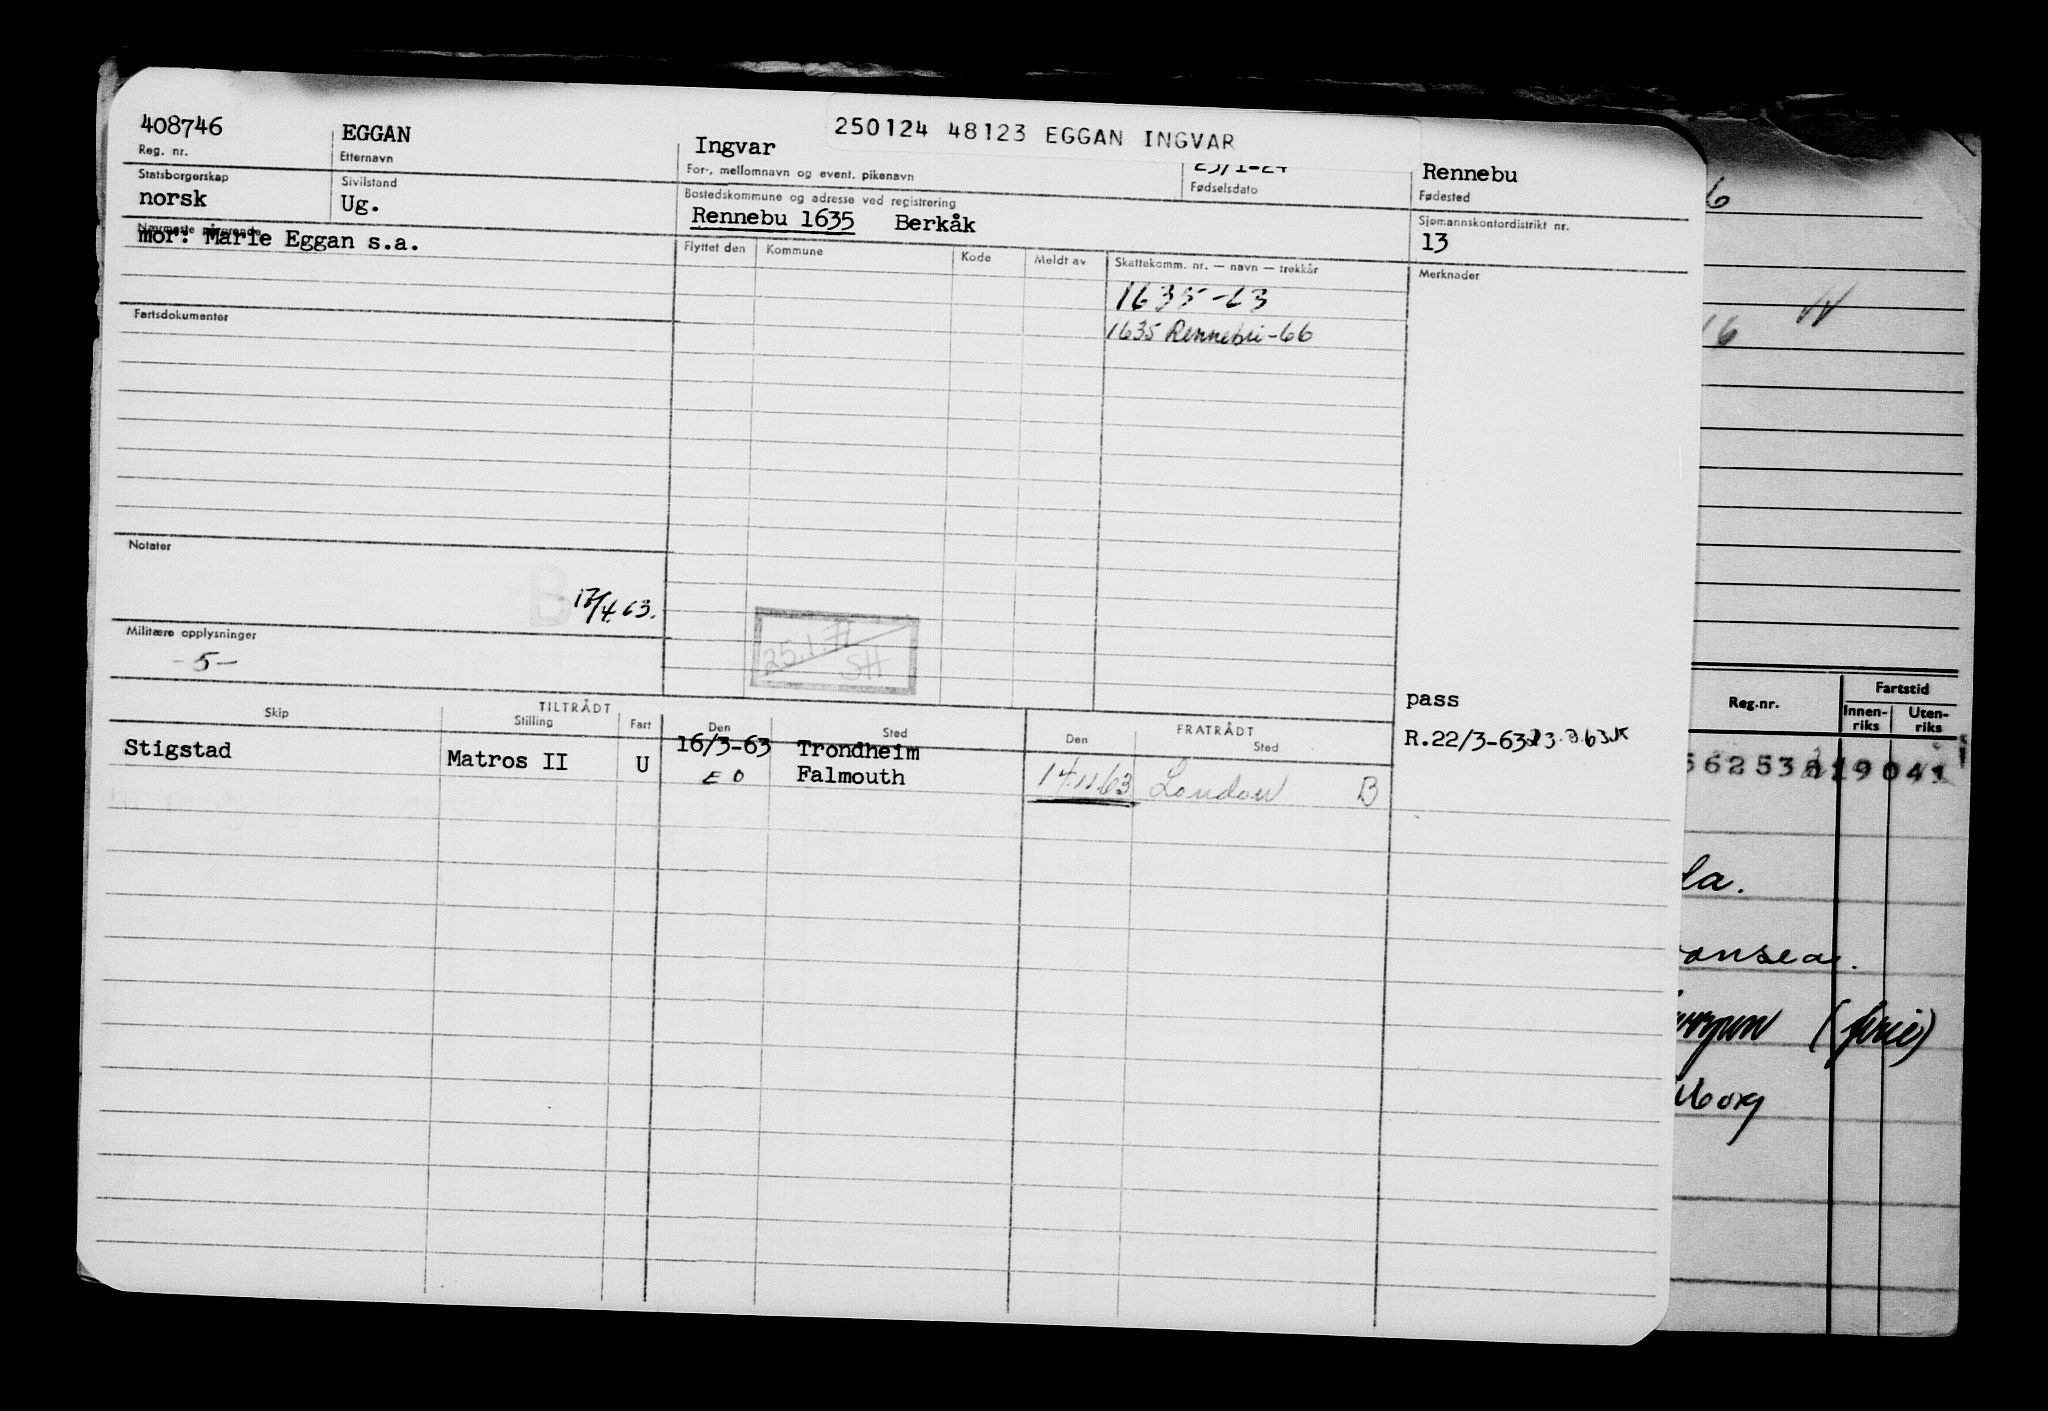 250124 48123 EGGAN INGVAR
408746 EGGAN Ingvar 25/1-24 Rennebu
Reg. nr. Etternavn For-, mellomnavn og event. pikenavn Fødselsdato Fødested
Statsborgerskap Sivilstand Bostedskommune og adresse ved registrering Sjømannskontordistrikt nr.
norsk Ug. Rennebu 1635 Berkåk 13
Nærmeste pårørende
mor: Marie Eggan s.a.
Flyttet den Kommune Kode Meldt av Skattekomm. nr. — navn — trekkår Merknader
1635-63
1635 Rennebu-66
Fartsdokumenter
Notater
17/4.63.
B
Militære opplysninger
-5-
25.1.
SH
pass
TILTRÅDT FRATRÅDT
Skip Stilling Fart Den Sted Den Sted
Stigstad Matros II U 16/3-63 Trondheim R.22/3-63
EO Falmouth 14.11.63 London B
6
16
Reg.nr. Fartstid
Innen-riks Uten-riks
la.
(ferie)